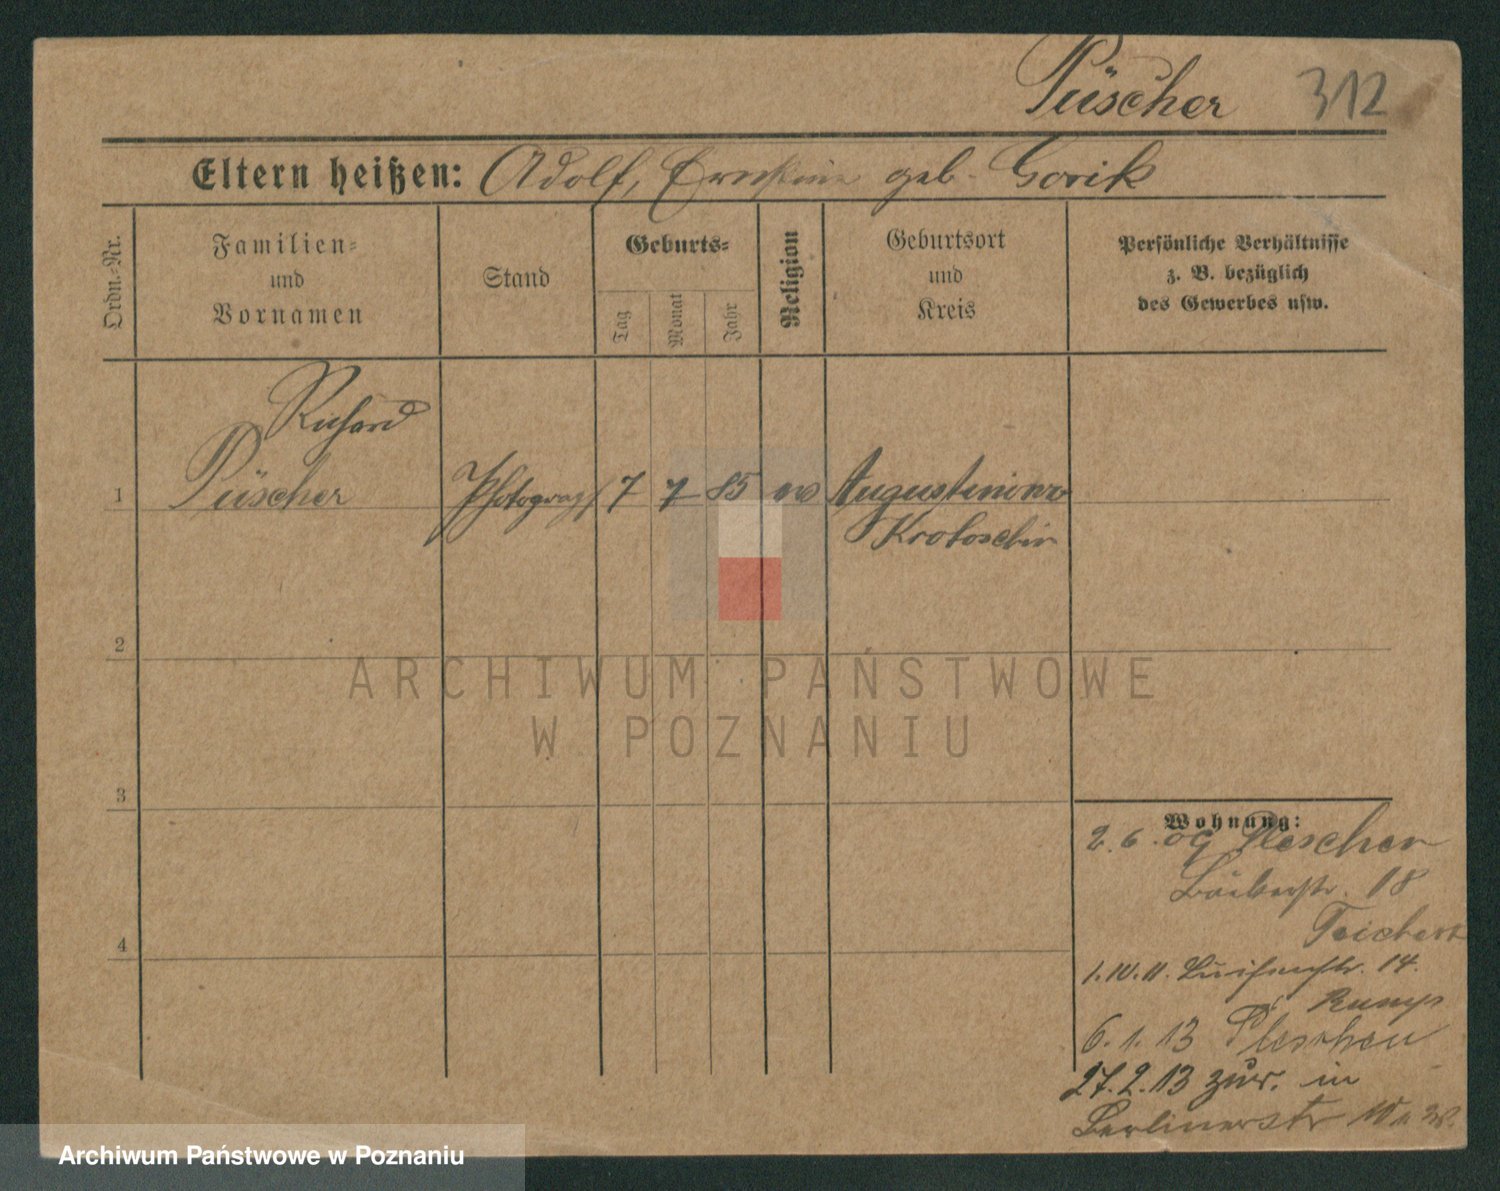 Püscher 312
Eltern heißen: Adolf, Ernstine geb. Gorik
Ordn.-Nr.
Familien-
und
Vornamen
Stand
Geburts-
Tag
Monat
Jahr
Religion
Geburtsort
und
Kreis
Persönliche Verhältnisse
z. B. bezüglich
des Gewerbes usw.
Richard
1 Püscher Photograph 7 7 85 ev Augustinowo
Krotoschin
2
ARCHIWUM PAŃSTWOWE
W POZNANIU
3
Wohnung:
2.6.09 Pleschen
18
Teichert
1.10.11. Luisenstr. 14.
6.1.13 Pleschen
27.2.13 zur. in
Berlinerstr 10
4
Archiwum Państwowe w Poznaniu